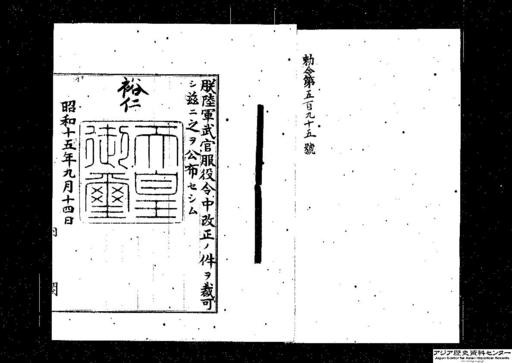 勅令第五百九十五號
朕陸軍武官服役令中改正ノ件ヲ裁可
シ茲ニ之ヲ公布セシム
裕仁
天皇御璽
昭和十五年九月十四日
内
閣
アジア歴史資料センター
Japan Center for Asian Historical Records